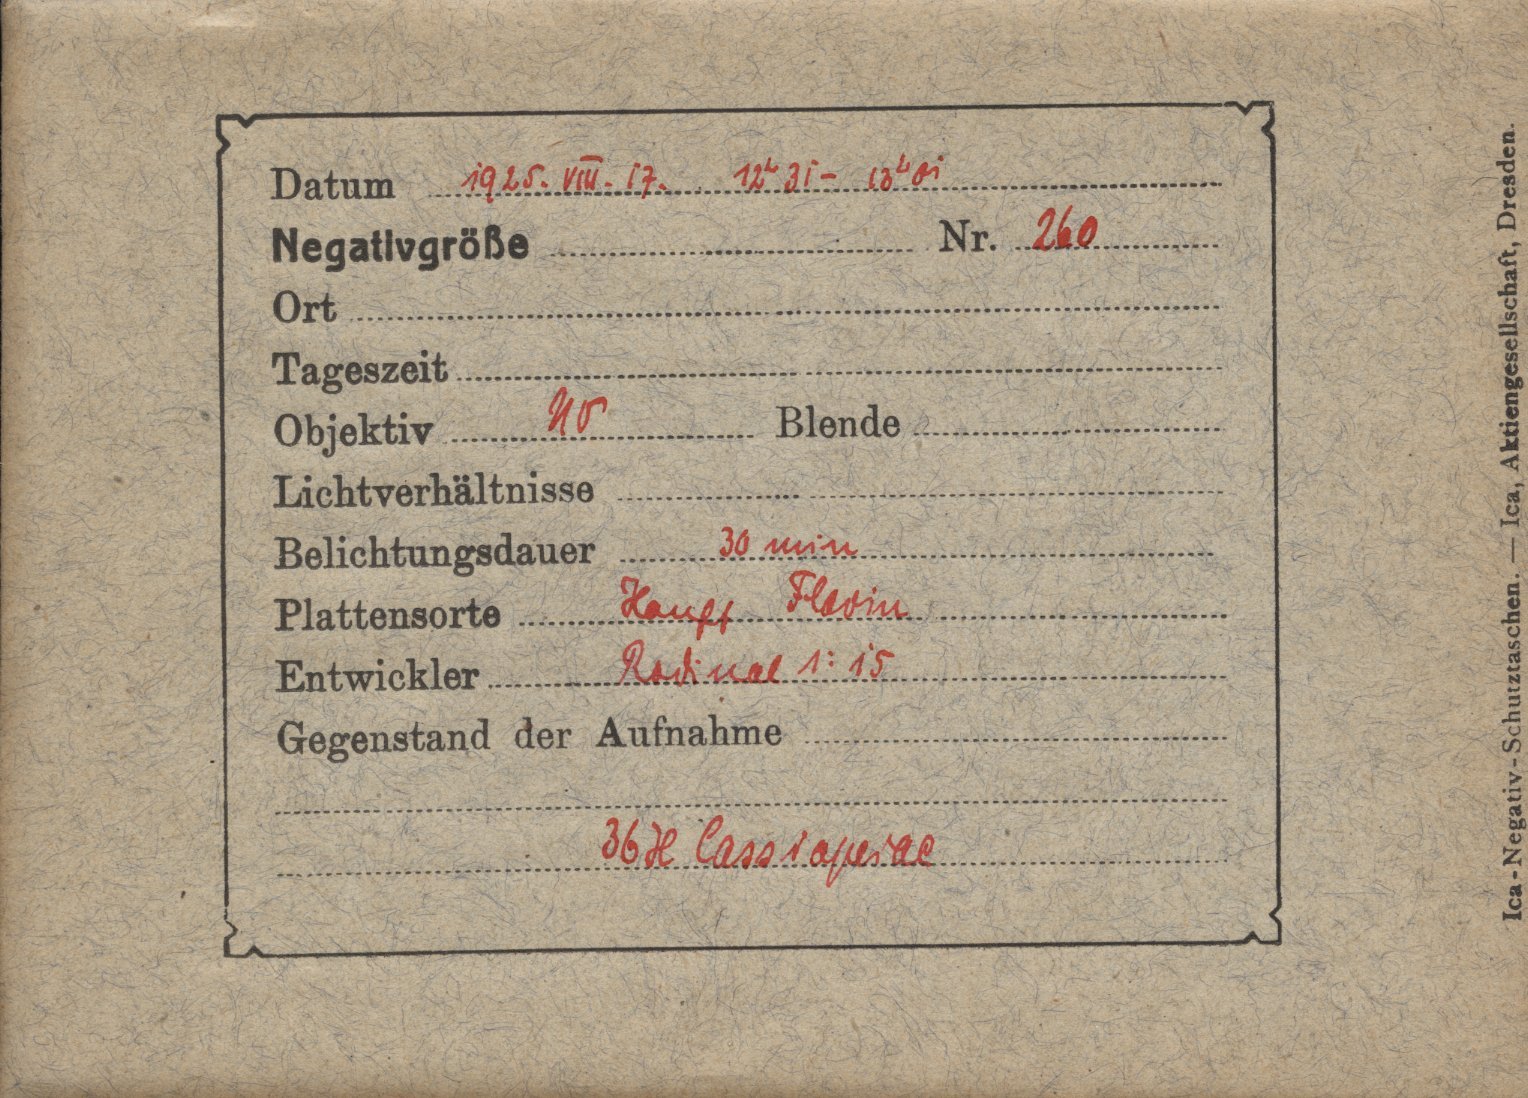 Datum 1925. VIII. 17. 12h 31 - 13h 01
Negativgröße Nr. 260
Ort
Tageszeit
Objektiv Blende
Lichtverhältnisse
Belichtungsdauer 30 min
Plattensorte Hauff Flavin
Entwickler Rodinal 1:15
Gegenstand der Aufnahme
36 H Cassiopeiae
Ica-Negativ-Schutztaschen. — Ica, Aktiengesellschaft, Dresden.